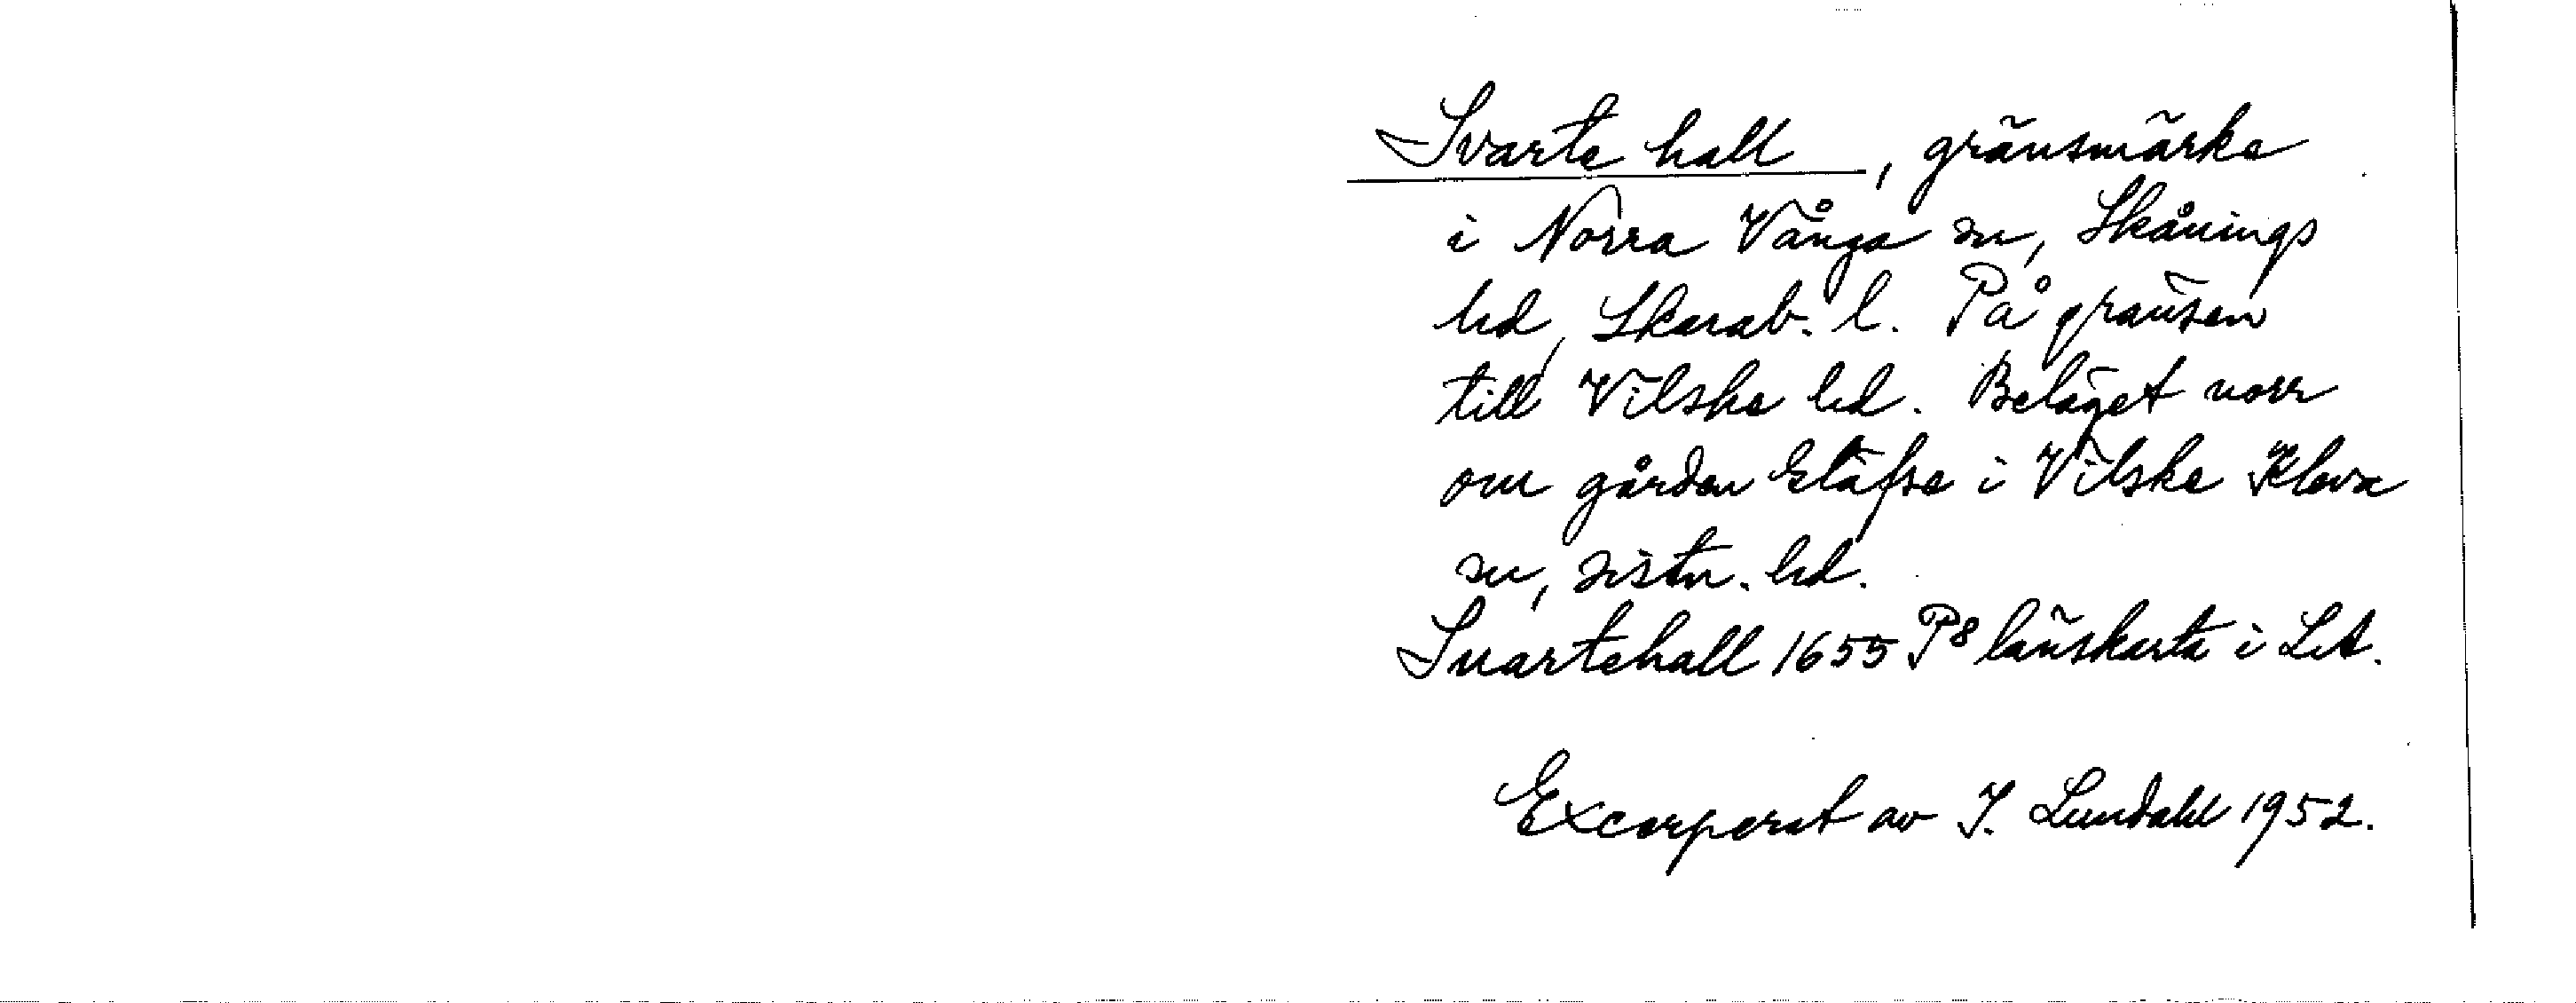 Svarte hall, gränsmärke
i Norra Vånga sn, Skånings
hd, Skarab. l. På gränsen
till Vilske hd. Beläget norr
om gården i Vilske Kleva
sn, sistn. hd.
Suartehall 1655 P8 länskarta i LA.
Excerperat av I. Lundahl 1952.